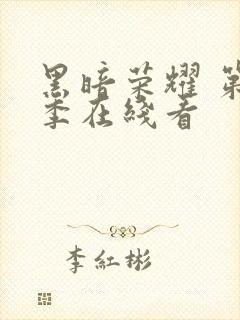 黑暗荣耀 第
季在线看
李紅彬